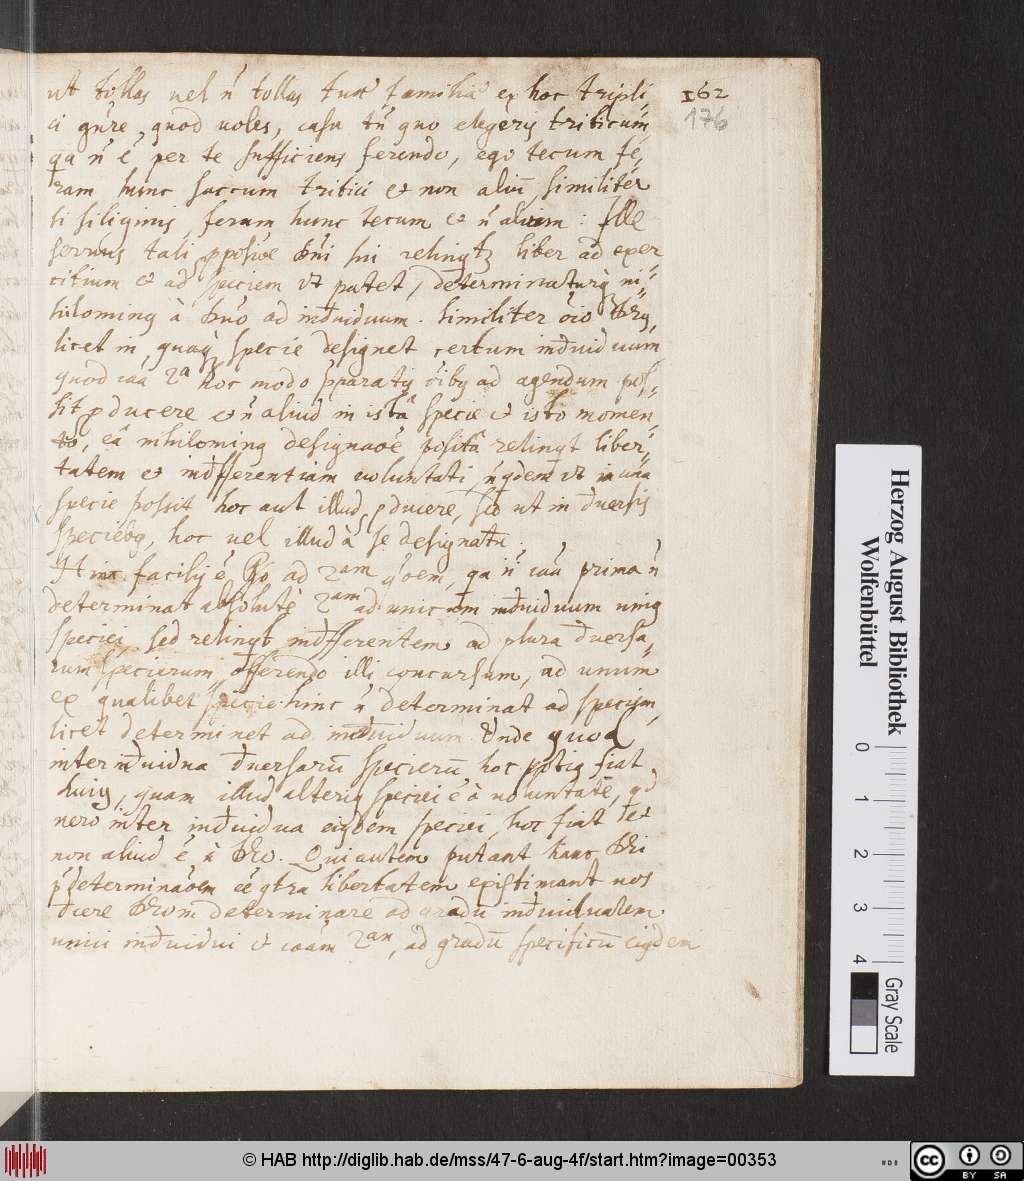 ut tollas uel ñ tollas tuæ familiæ ex hoc tripli-
ci gñre, quod uoles, casu tñ quo elegeris triticum
qa ñ é per te sufficiens ferendo, ego tecum fe,
ram hunc saccum tritici et non aliū, similiter
si siliginis, feram hunc tecum et ñ alium: Ille
seruus tali pposioe dñi sui relinqtr liber ad exer
citium et ad speciem ut patet, determinaturq ni-
hilominq à dño ad indiuiduum. similiter
licet in, quaq specie designet certum indiuiduum
quod caa 2a hoc modo pparatis ad agendum pos-
sit pducere et ñ aliud in istâ specie et isto momen,
to, eâ nihilominq designaoe positâ relinqt liber-
tatem et indifferentiam uoluntati, ñ qdem ut in una
specie possit hoc aut illud pducere, sed ut in diuersis
speciebq, hoc uel illud à se designatu.
Hinc facilis é Rṍ ad 2am qoem, qa ñ caa prima ñ
determinat absolutè 2am ad unicum indiuiduum uniq
speciei, sed relinqt indifferentem ad plura diuersa,
rum specierum, offerendo illi concursum, ad unum
ex qualibet specie hinc ñ determinat ad speciem,
licet determinet ad indiuiduum. Unde quod
inter indiuidua diuersarū specierū hoc potiq fiat
huiq, quam illud alteriq speciei é à uoluntate, qd
uero inter indiuidua eiqdem speciei, hoc fiat et
non aliud é à Deo. Qui autem putant hanc
pdeterminaoem eé qtra libertatem existimant nos
dicere Deom determinare ad gradū indiuidualem
unius indiuidui et caam 2am, ad gradū specificū eiqdem
162
176
Herzog August Bibliothek
Wolfenbüttel
0
1
2
3
4
Gray Scale
© HAB http://diglib.hab.de/mss/47-6-aug-4f/start.htm?image=00353
cc
BY
SA